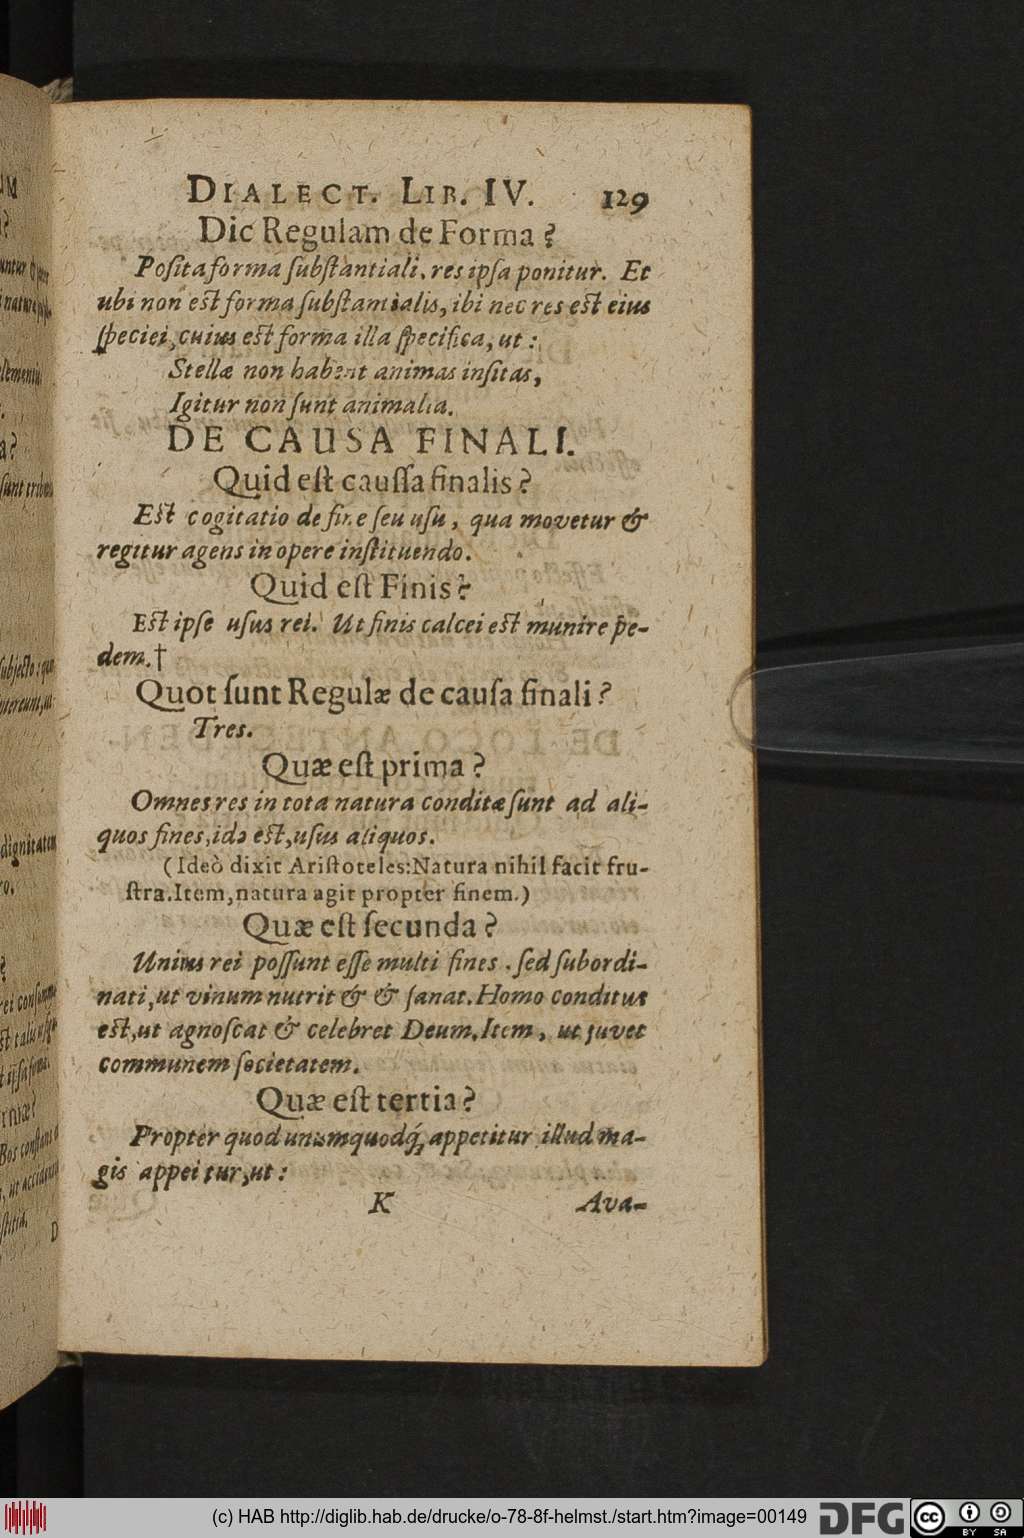 DIALECT. LIB. IV. 129
Dic Regulam de Forma?
Posita forma substantiali, res ipsa ponitur. Et
ubi non est forma substantialis, ibi nec res est eius
speciei, cuius est forma illa specifica, ut:
Stellæ non habent animas insitas,
Igitur non sunt animalia.
DE CAUSA FINALI.
Quid est caussa finalis?
Est cogitatio de fine seu usu, qua movetur &
regitur agens in opere instituendo.
Quid est Finis?
Est ipse usus rei. Ut finis calcei est munire pe-
dem.†
Quot sunt Regulæ de causa finali?
Tres.
Quæ est prima?
Omnes res in tota natura conditæ sunt ad ali-
quos fines, ido est, usus aliquos.
(Ideò dixit Aristoteles: Natura nihil facit fru-
stra. Item, natura agit propter finem.)
Quæ est secunda?
Unius rei possunt esse multi fines. sed subordi-
nati, ut vinum nutrit & & sanat. Homo conditus
est, ut agnoscat & celebret Deum, Item, ut juvet
communem societatem.
Quæ est tertia?
Propter quod unumquodq́, appetitur illud ma-
gis appeitur, ut:
K Ava-
dignitatem
(c) HAB http://diglib.hab.de/drucke/o-78-8f-helmst./start.htm?image=00149
DFG
cc BY SA